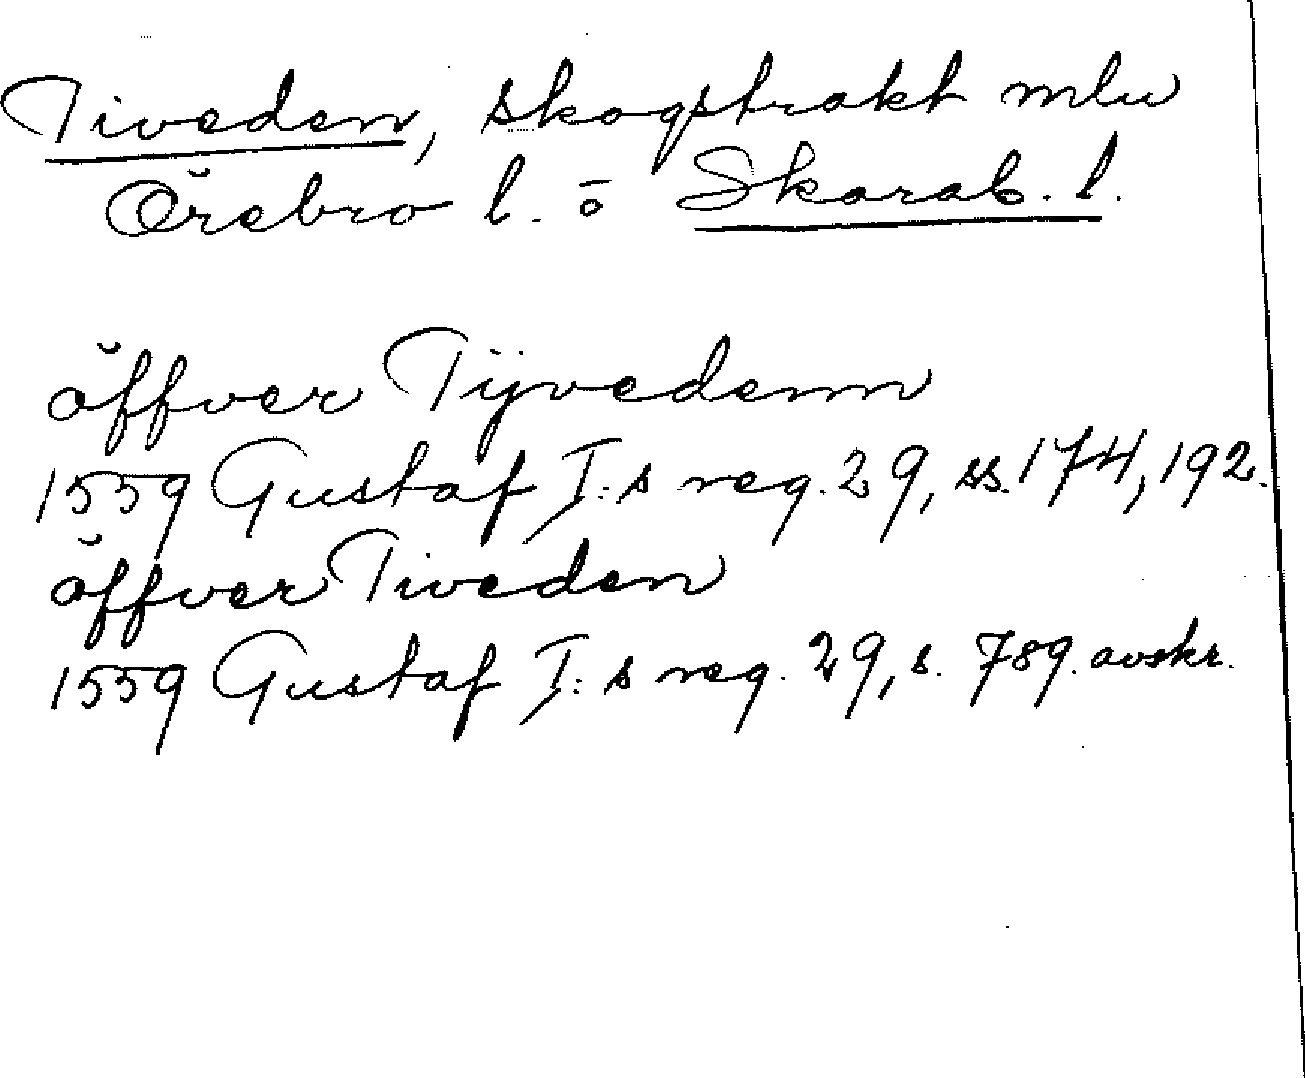 Tiveden, skogstrakt mlu
Örebro l. o Skarab. l.
öffver Tijvedenn
1559 Gustaf I:s reg. 29, ss. 174, 192.
öffver Tiveden
1559 Gustaf I:s reg. 29, s. 789. avskr.